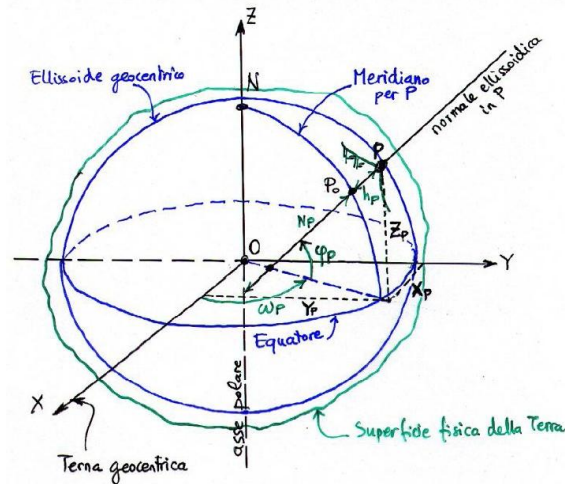 Z
Ellissoide geocentrico
N
Meridiano
per P
normale ellissoidica
in P
P
P₀
hₚ
Nₚ
Zₚ
φₚ
O
Y
ωₚ
Yₚ
Xₚ
Equatore
X
asse polare
Terna geocentrica
Superficie fisica della Terra